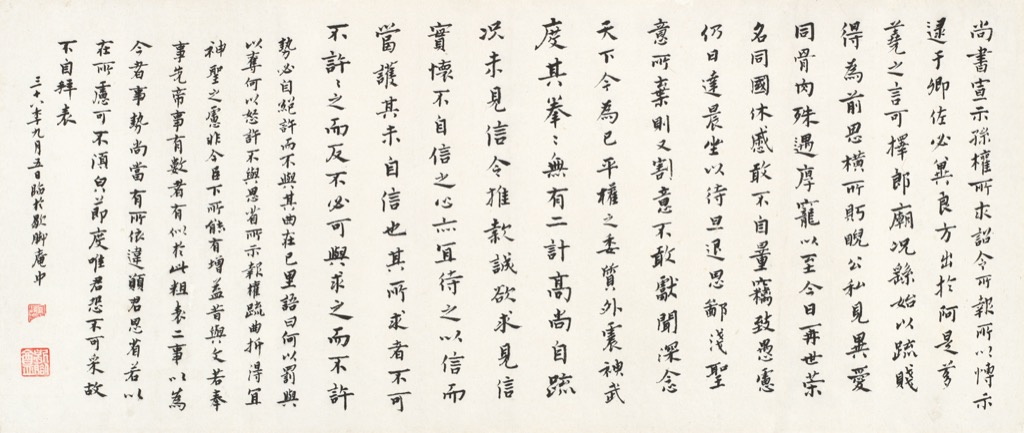 尚書宣示孫權所求詔令所報所以博示
逮于卿佐必異良方出於阿是芻
蕘之言可擇郎廟況繇始以疏賤
得為前恩橫所眄睨公私見異愛
同骨肉殊遇厚寵以至今日再世榮
名同國休慼敢不自量竊致愚慮
仍日達晨坐以待旦退思鄙淺聖
意所棄則又割意不敢獻聞深念
天下今為已平權之委質外震神武
度其拳〻無有二計高尚自疏
況未見信今推款誠欲求見信
實懷不自信之心亦宜待之以信而
當護其未自信也其所求者不可
不許〻之而反不必可與求之而不許
勢必自絕許而不與其曲在己里語曰何以罰與
以奪何以怒許不與思省所示報權疏曲折得宜
神聖之慮非今臣下所能有增益昔與文若奉
事先帝事有數者有似於此粗表二事以為
今者事勢尚當有所依違願君思省若以
在所慮可不須良節度唯君恐不可采故
不自拜表
三十八年九月五日臨於歇腳庵中